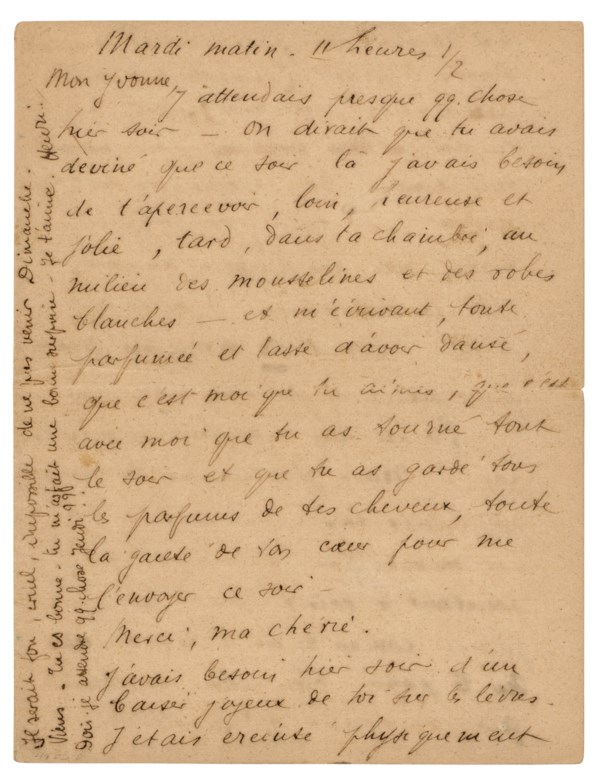 Mardi matin. 11 heures 1/2
Mon Yvonne,
J'attendais presque qq. chose
hier soir — On dirait que tu avais
deviné que ce soir là j'avais besoin
de t'apercevoir, loin, heureuse et
jolie, tard, dans ta chambre, au
milieu des mousselines et des robes
blanches — et m'écrivant, toute
parfumée et lasse d'avoir dansé,
que c'est moi que tu aimes, que c'est
avec moi que tu as tourné tout
le soir et que tu as gardé tous
les parfums de tes cheveux, toute
la gaieté de ton cœur pour me
l'envoyer ce soir —
Merci, ma chérie.
J'avais besoin hier soir d'un
baiser joyeux de toi sur les lèvres.
J'étais éreinté physiquement
Ce serait fou, cruel, impossible de ne pas venir Dimanche.
Viens. - Tu es bonne - tu m'as fait une bonne surprise - Je t'aime. Henri.
Dois je attendre qq. chose Jeudi ??